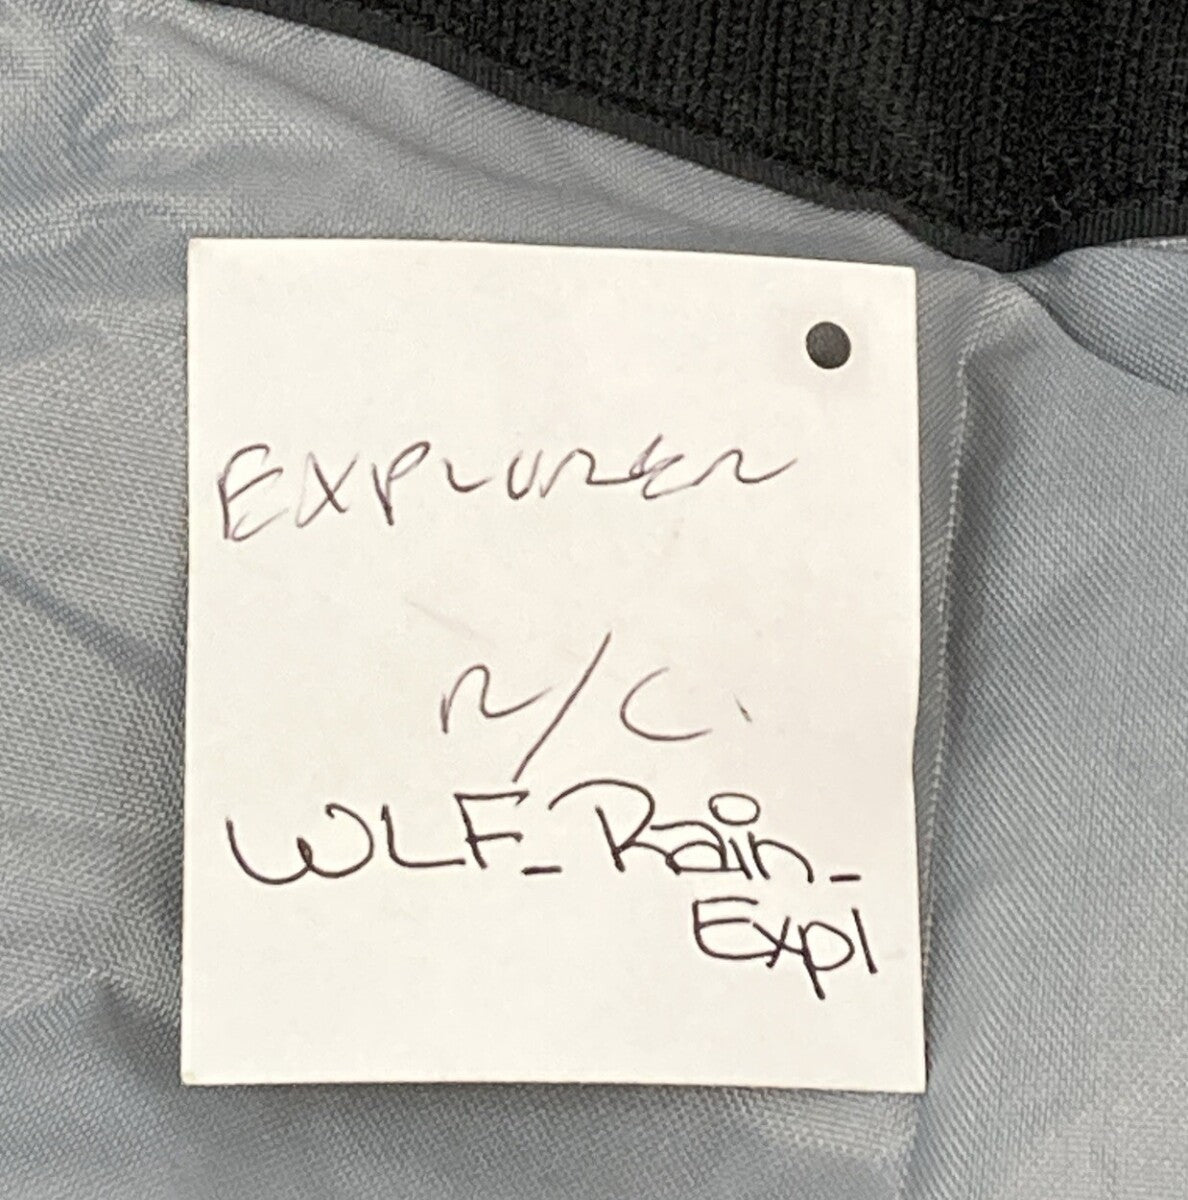 EXPLORER
R/C.
WLF_Rain_
Expl